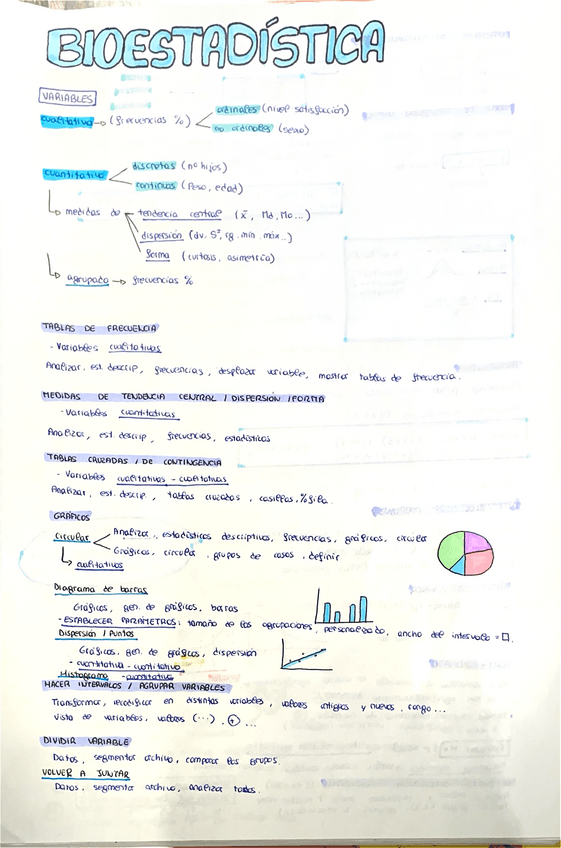 BIOESTADÍSTICA
VARIABLES
cualitativa → (frecuencias %)
ordinales (nivel satisfacción)
no ordinales (sexo)
cuantitativa
discretas (nº hijos)
continuas (Peso, edad)
medidas de
tendencia central (x̄, Md, Mo...)
dispersión (dv. S², rg. mín. máx..)
forma (curtosis, asimetría)
agrupada → frecuencias %
TABLAS DE FRECUENCIA
- Variables cualitativas
Analizar, est. descrip, frecuencias, desplazar variable, mostrar tablas de frecuencia.
MEDIDAS DE TENDENCIA CENTRAL / DISPERSIÓN / FORMA
- Variables cuantitativas
Analizar, est. descrip, frecuencias, estadísticos
TABLAS CRUZADAS / DE CONTINGENCIA
- Variables cualitativas - cualitativas
Analizar, est. descrip, tablas cruzadas, casillas, % fila.
GRÁFICOS
Circular
Analizar, estadísticos descriptivos, frecuencias, gráficos, circular
Gráficos, circular, grupos de casos, definir
cualitativas
Diagrama de barras
Gráficos, gen. de gráficos, barras
- ESTABLECER PARÁMETROS: tamaño de las agrupaciones, personalizado, ancho del intervalo = □.
Dispersión / Puntos
Gráficos, gen. de gráficos, dispersión
- cuantitativa - cuantitativa
Histograma - cuantitativa
HACER INTERVALOS / AGRUPAR VARIABLES
Transformar, recodificar en distintas variables, valores antiguos y nuevos, rango...
Vista de variables, valores (...), (+) ...
DIVIDIR VARIABLE
Datos, segmentar archivo, comparar los grupos.
VOLVER A JUNTAR
Datos, segmentar archivo, analizar todos.